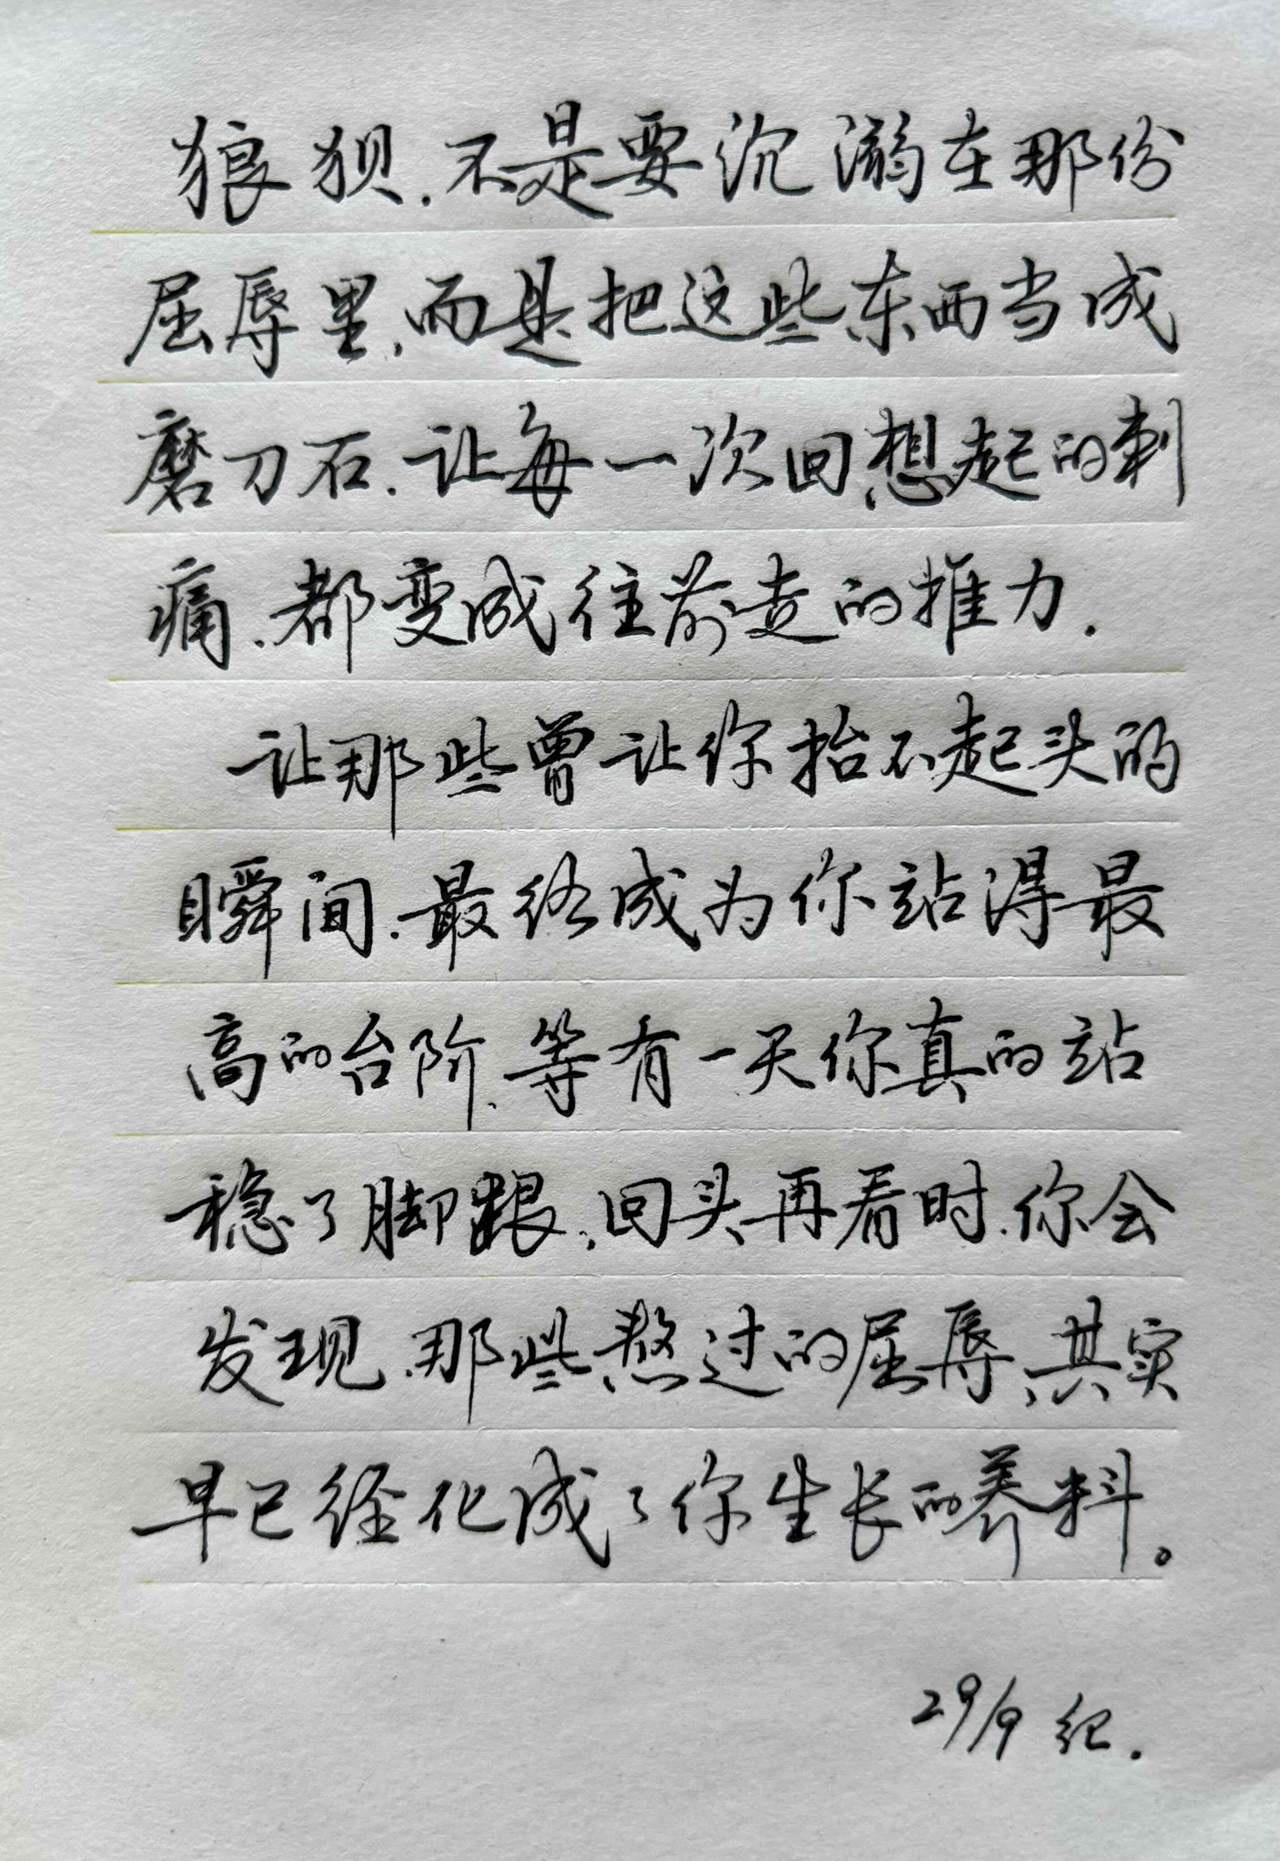 狼狈.不是要沉溺在那份
屈辱里,而是把这些东西当成
磨刀石.让每一次回想起的刺
痛、都变成往前走的推力.
让那些曾让你抬不起头的
瞬间.最终成为你站得最
高的台阶、等有一天你真的站
稳了脚跟,回头再看时.你会
发现、那些熬过的屈辱、其实
早已经化成了你生长的养料。
29/9 纪.